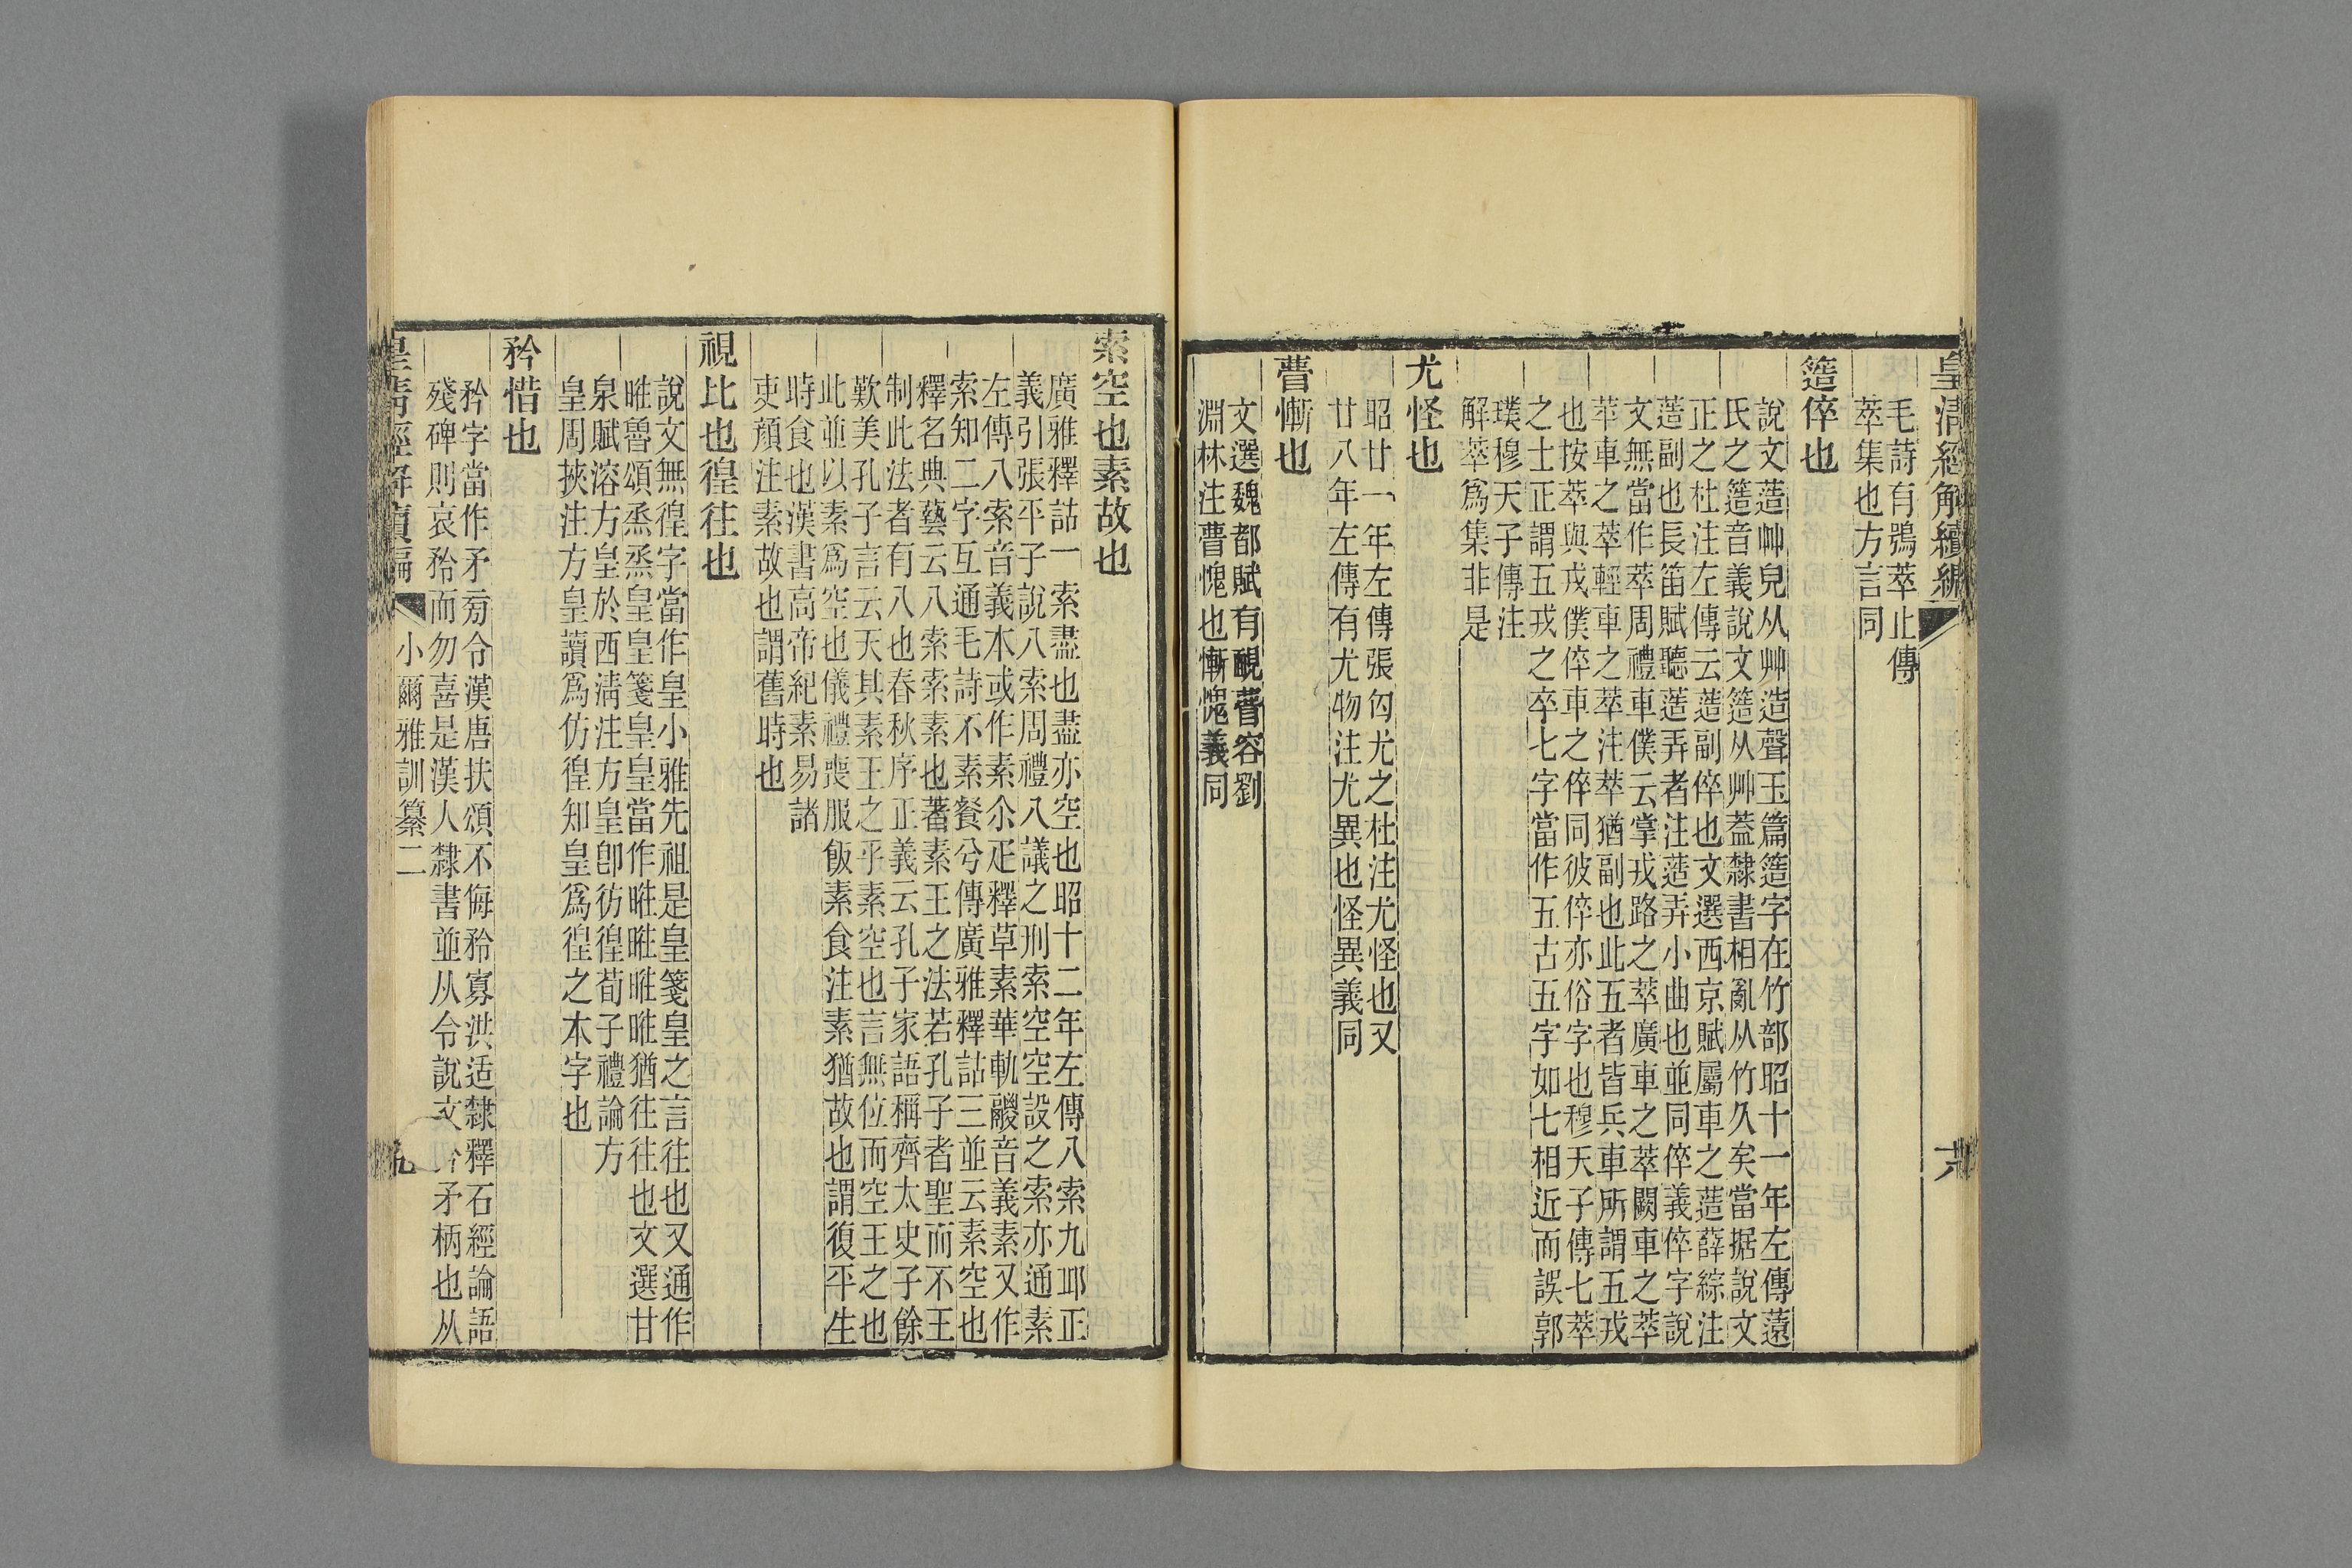 皇清經解續編
六
毛詩有鴞萃止傳
萃集也方言同
簉倅也
說文䓆艸皃从艸造聲玉篇簉字在竹部昭十一年左傳薳
氏之簉音義說文簉从艸葢隸書相亂从竹久矣當据說文
正之杜注左傳云䓆副倅也文選西京賦屬車之䓆薛綜注
䓆副也長笛賦聽䓆弄者注䓆弄小曲也並同倅義倅字說
文無當作萃周禮車僕云掌戎路之萃廣車之萃闕車之萃
苹車之萃輕車之萃注萃猶副也此五者皆兵車所謂五戎
也按萃與戎僕倅車之倅同彼倅亦俗字也穆天子傳七萃
之士正謂五戎之卒七字當作五古五字如七相近而誤郭
璞穆天子傳注
解萃爲集非是
尤怪也
昭廿一年左傳張匄尤之杜注尤怪也又
廿八年左傳有尤物注尤異也怪異義同
瞢慚也
文選魏都賦有靦瞢容劉
淵林注瞢愧也慚愧義同
索空也素故也
廣雅釋詁一索盡也盡亦空也昭十二年左傳八索九邱正
義引張平子說八索周禮八議之刑索空空設之索亦通素
左傳八索音義本或作素尒疋釋草素華軌鬷音義素又作
索知二字互通毛詩不素餐兮傳廣雅釋詁三並云素空也
釋名典藝云八索索素也著素王之法若孔子者聖而不王
制此法者有八也春秋序正義云孔子家語稱齊太史子餘
歎美孔子言云天其素王之乎素空也言無位而空王之也
此並以素爲空也儀禮喪服飯素食注素猶故也謂復平生
時食也漢書高帝紀素易諸
吏顏注素故也謂舊時也
視比也徨往也
說文無徨字當作皇小雅先祖是皇箋皇之言往也又通作
暀魯頌烝烝皇皇箋皇皇當作暀暀暀暀猶往往也文選甘
泉賦溶方皇於西淸注方皇卽彷徨荀子禮論方
皇周挾注方皇讀爲仿徨知皇爲徨之本字也
矜惜也
矜字當作矛㫄令漢唐扶頌不侮矜寡洪适隸釋石經論語
殘碑則哀矜而勿喜是漢人隸書並从令說文矜矛柄也从
皇清經解續編
小爾雅訓纂二
九